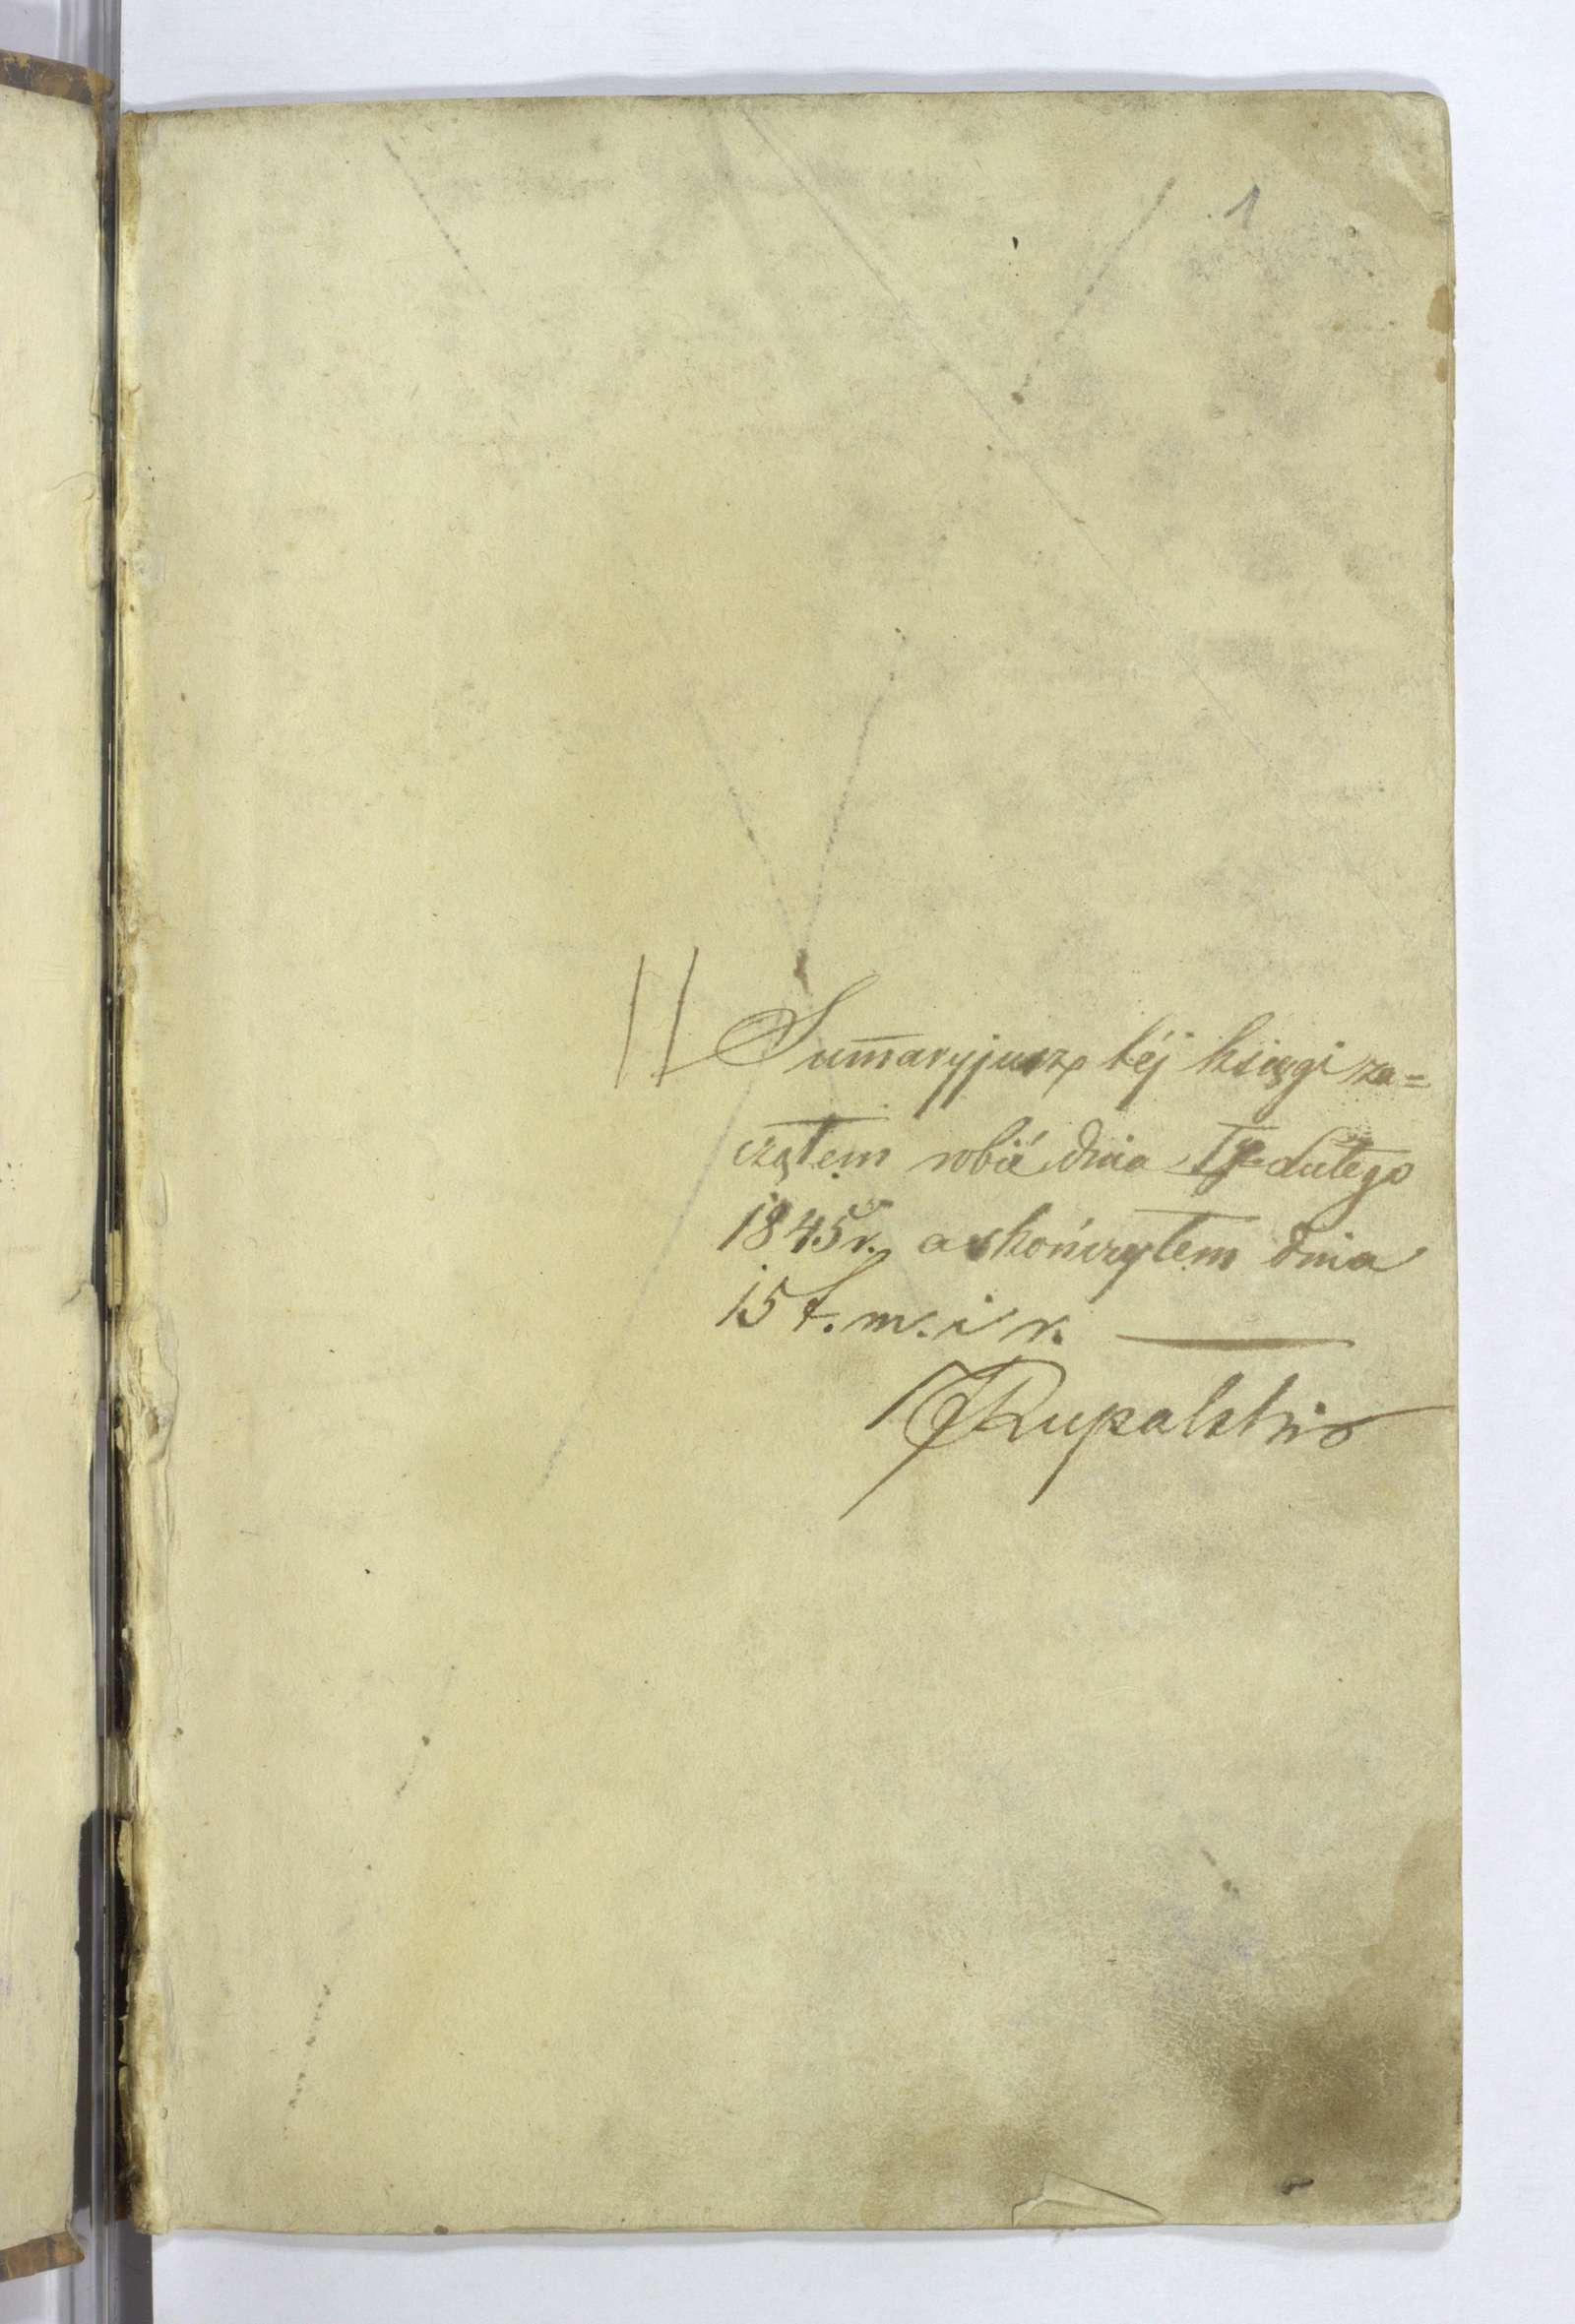 1
Sum̄aryjusz téj księgi za=
cząłem robić dnia Lutego
1845 r. a skończyłem dnia
15 t. m. i r.
Rupalski